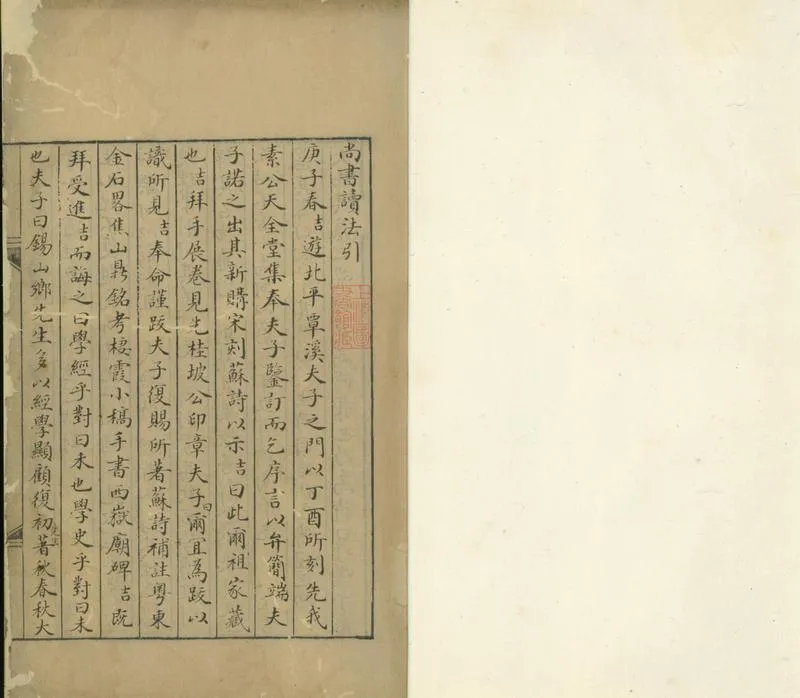 尚書讀法引
庚子春吉遊北平覃溪夫子之門以丁酉所刻先我
素公天全堂集奉夫子鑒訂而乞序言以弁簡端夫
子諾之出其新購宋刻蘇詩以示吉曰此爾祖家藏
也吉拜手展卷見先桂坡公印章夫子曰爾宜為跋以
識所見吉奉命謹跋夫子復賜所著蘇詩補註粵東
金石畧焦山鼎銘考棲霞小稿手書西嶽廟碑吉既
拜受進吉而誨之曰學經乎對曰未也學史乎對曰未
也夫子曰錫山鄉先生多以經學顯顧復初著春秋大